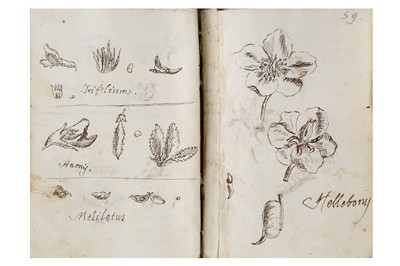 Trifolium.
Melilotus
59.
Helleborus